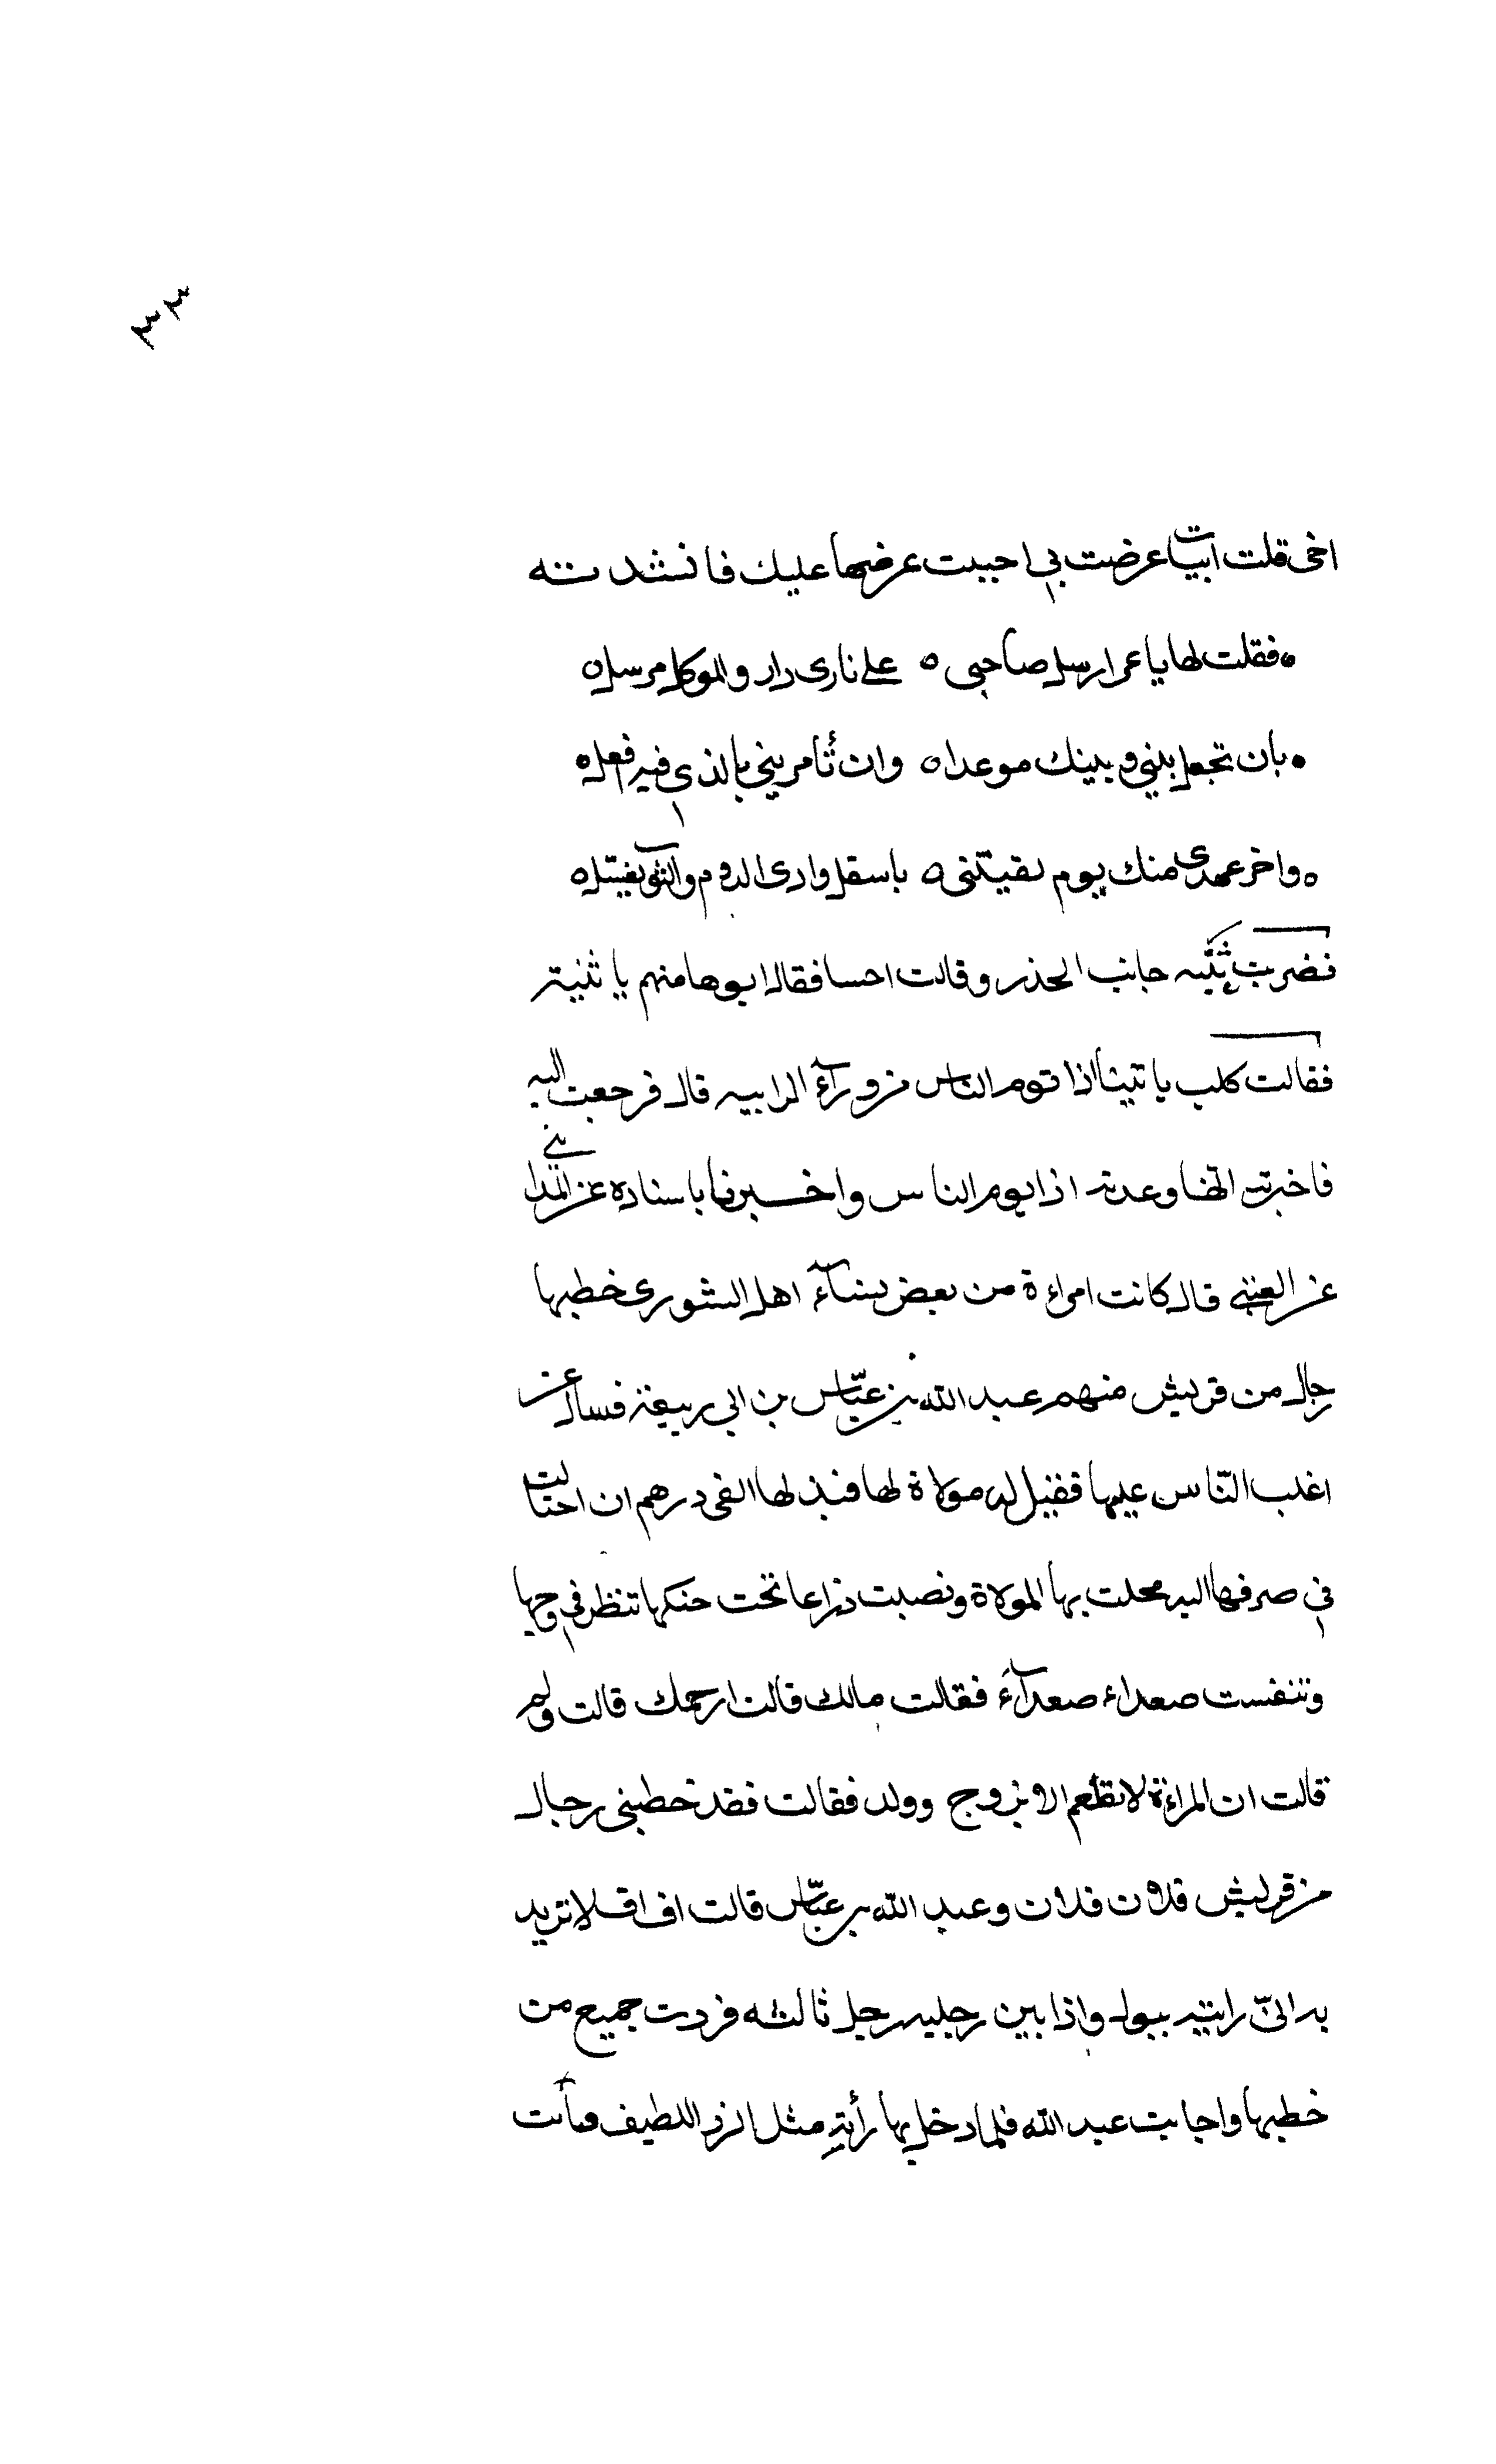 ٣٣
اخى قلت ابيات عرضت بي احببت عرضها عليك فانشدته
ه فقلت لها يا عز ارسل صاحبى ه على نارى دار والموكل مرسل ه
ه بان تجعل بيني وبينك موعدا ه وان تأمريني بالذى فيه افعل ه
ه واخر عهدى منك يوم لقيتنى ه باسفل وادى الدوم والثوب يغسل ه
فضربت بثينه جانب الخدر وقالت اخسا فقال ابوها منهم يا بثينة
فقالت كلب ياتينا اذا نوم الناس من ورآء الرابيه قال فرجعت اليه
فاخبرته انها وعدته اذا نوم الناس واخبرنا باسناده عن المدايني
عن العتبي قال كانت امراءة من بعض نسآء اهل الشورى خطبها
رجال من قريش منهم عبد الله بن عباس بن ابي ربيعة فسال عن
اغلب النّاس عليها فقيل له مولاة لها فبذل لها الفى درهم ان احتالت
فى صرفها اليه فخلت بها المولاة ونصبت ذراعا تحت حنكها تنظر في وجهها
وتنفست صعداء صعدآء فقالت مالك قالت ارحمك قالت ولم
قالت ان المراءة لا تطعم الا بزوج وولد فقالت فقد خطبنى رجال
من قريش فلان فلان وعبد الله بن عبّاس قالت اف اف لا تريد
يه انّى رايته يبول واذا بين رجليه رجل ثالثه فردت جميع من
خطبها واجابت عبد الله فلما دخل بها رأته مثل الزر اللطيف فمأتت